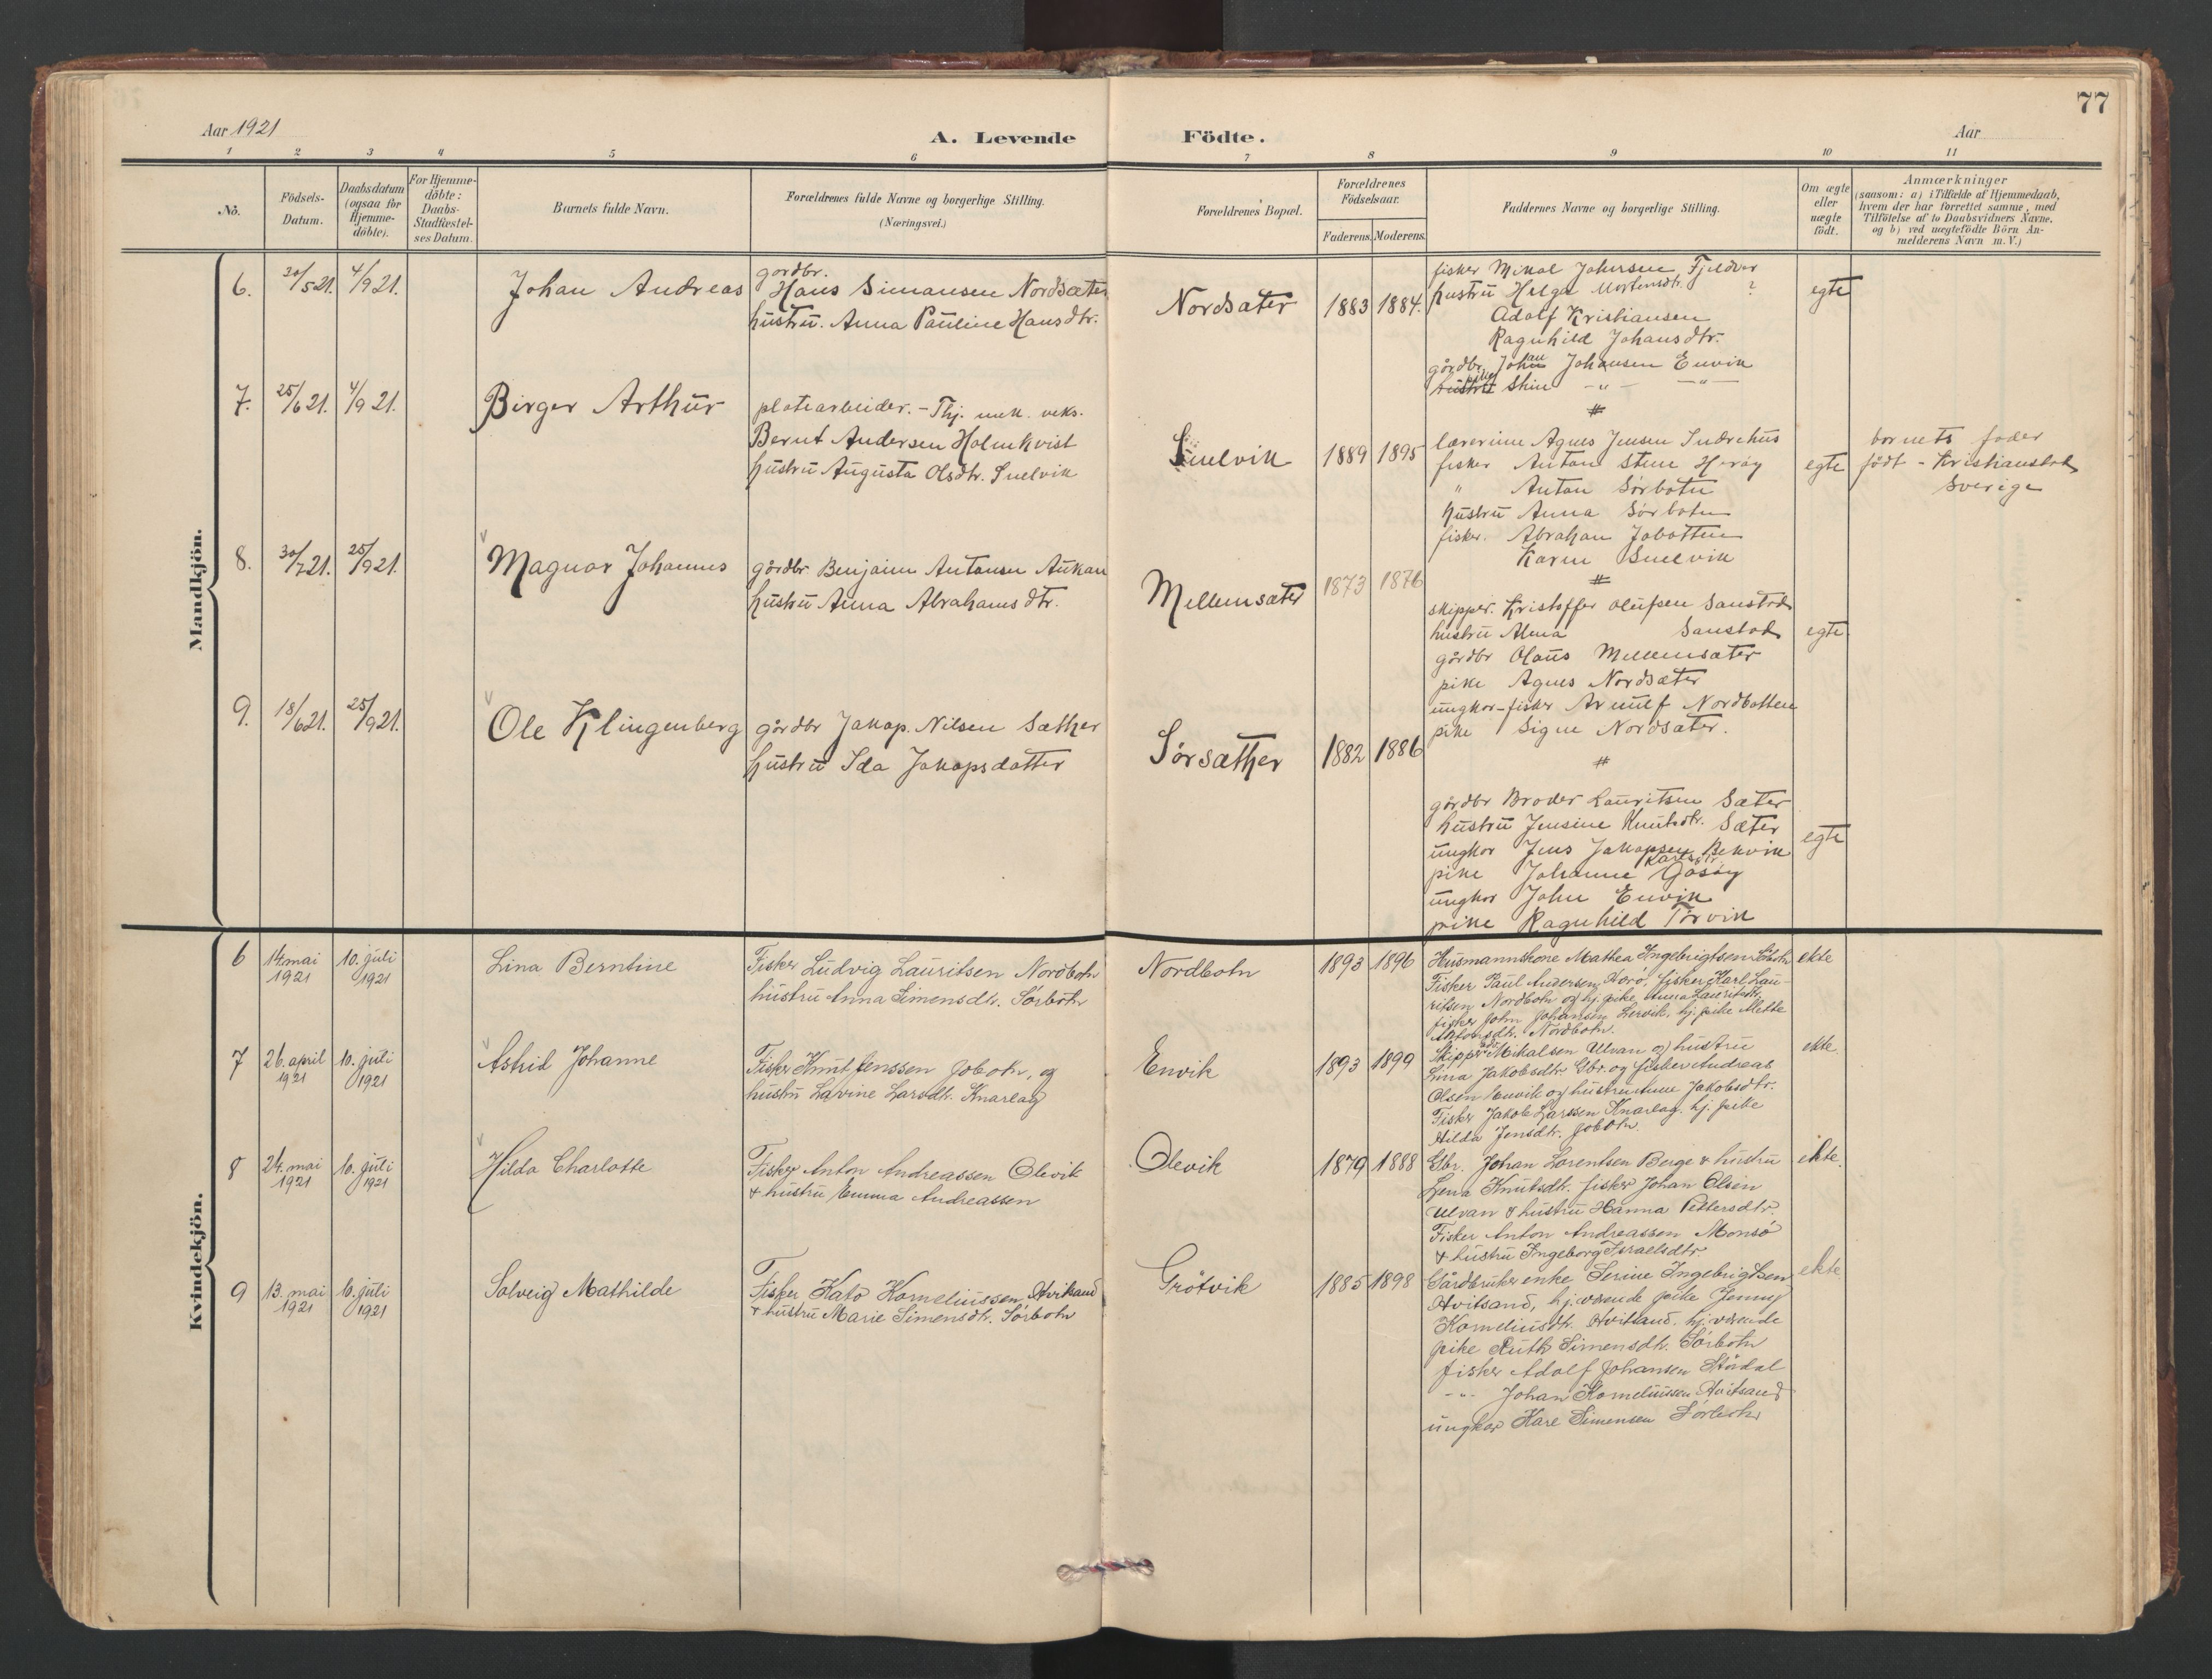 77
Aar 1921
A. Levende Födte.
Aar
1 2 3 4 5 6 7 8 9 10 11
No.
Födsels-Datum.
Daabsdatum (ogsaa for Hjemme-döbte).
For Hjemme-döbte: Daabs-Stadfæstel-ses Datum.
Barnets fulde Navn.
Forældrenes fulde Navne og borgerlige Stilling.
(Næringsvei.)
Forældrenes Bopæl.
Forældrenes Födselsaar.
Faderens. Moderens.
Faddernes Navne og borgerlige Stilling.
Om ægte eller uægte födt.
Anmærkninger
(saasom: a) i Tilfælde af Hjemmedaab,
hvem der har forrettet samme, med
Tilföielse af to Daabsvidners Navne.
og b) ved uægtefödte Börn An-
melderens Navn m. V.)
Mandkjön.
6. 30/5 21. 4/9 21. Johan Andreas
gårdbr.
Hans Simonsen Nordsæter
hustru. Anna Pauline Hansdtr.
Nordsæter 1883 1884.
fisker Mikal Johnsen Fjeldvær
hustru Helga Mortensdtr. ?
Adolf Kristiansen
Ragnhild Johansdtr.
gårdbr. Johan Johansen Envik
hustru -"- -"-
#
egte
7. 25/6 21. 4/9 21. Birger Arthur
platearbeider. - Thj. mek. veks.
Bernt Andersen Holmkvist
hustru Augusta Olsdtr. Snelvik
Snelvik 1889 1895
lærerinne Agnes Jensen Indrehus
fisker Anton Stene Herøy
" Anton Sørbotn
hustru Anna Sørbotn
fisker. Abraham Jobotten
Karen Snelvik
#
egte
barnets fader
født - Kristianstad
Sverige
8. 30/7 21. 25/9 21. Magnar Johannes
gårdbr. Benjamin Antonsen Aukan
hustru Anna Abrahamsdtr.
Mellemsæter 1873 1876
skipper. Kristoffer Olufsen Sanstad
hustru Alma Sanstad
gårdbr Olaus Mellemsæter
pike Agnes Nordsæter
ungkar-fisker Arnulf Nordbotten
pike Signe Nordsæter.
#
egte
9. 18/6 21. 25/9 21. Ole Klingenberg
gårdbr Jakop. Nilsen Sæther
hustru Ida Jakopsdatter
Sørsæther 1882 1886
gårdbr Broder Lauritsen Sæter
hustru Jensine Knutsdtr. Sæter
ungkar Jens Jakopsen Bekvik
Karlsdtr.
pike Johanne Gåsøy
ungkar John Envik
pike Ragnhild Tørvik
egte
Kvindekjön.
6 14. mai 1921 10. juli 1921 Lina Berntine
Fisker Ludvig Lauritsen Nordbotn
hustru Anna Simensdtr. Sørbotn
Nordbotn 1893 1896
Husmannskone Mathea Ingebrigtsen Sørbotn
Fisker Paul Andersen Herø, fisker Karl Lau-
ritsen Nordbotn og hj. pike Anna Lauritsdtr.
fisker John Johansen Lervik, hj. pike Mette
Antonsdtr. Nordbotn.
ekte
7 26. april 1921 10. juli 1921 Astrid Johanne
Fisker Knut Jenssen Jobotn, og
hustru Lavine Larsdtr. Knarlag
Envik 1893 1899
Skipper Mikalsen Ulvan og hustru
Lina Jakobsdtr. Gbr. og fisker Andreas
Olsen Envik og hustru Anne Jakobsdtr.
Fisker Jakob Larssen Knarlag. hj. pike
Hilda Jensdtr. Jobotn
ekte.
8 24. mai 1921 10. juli 1921 Hilda Charlotte
Fisker Anton Andreassen Olevik
& hustru Emma Andreassen
Olevik 1879 1888
Gbr. Johan Lorentsen Berge & hustru
Lena Knutsdtr. fisker Johan Olsen
Ulvan & hustru Hanna Pettersdtr.
Fisker Anton Andreassen Monsø
& hustru Ingeborg Israelsdtr.
ekte.
9 13. mai 1921 10. juli 1921 Solveig Mathilde
Fisker Kato Korneliussen Hvitsand
& hustru Marie Simensdtr. Sørbotn
Grøtvik 1885 1898
Gårdbruker enke Serine Ingebrigtsen
Hvitsand, hj. værende pike Jenny
Korneliusdtr. Hvitsand. hj. værende
pike Ruth Simensdtr. Sørbotn
fisker Adolf Johansen Størdal
-"- Johan Korneliussen Hvitsand
ungkar Kåre Simensen Sørbotn
ekte.